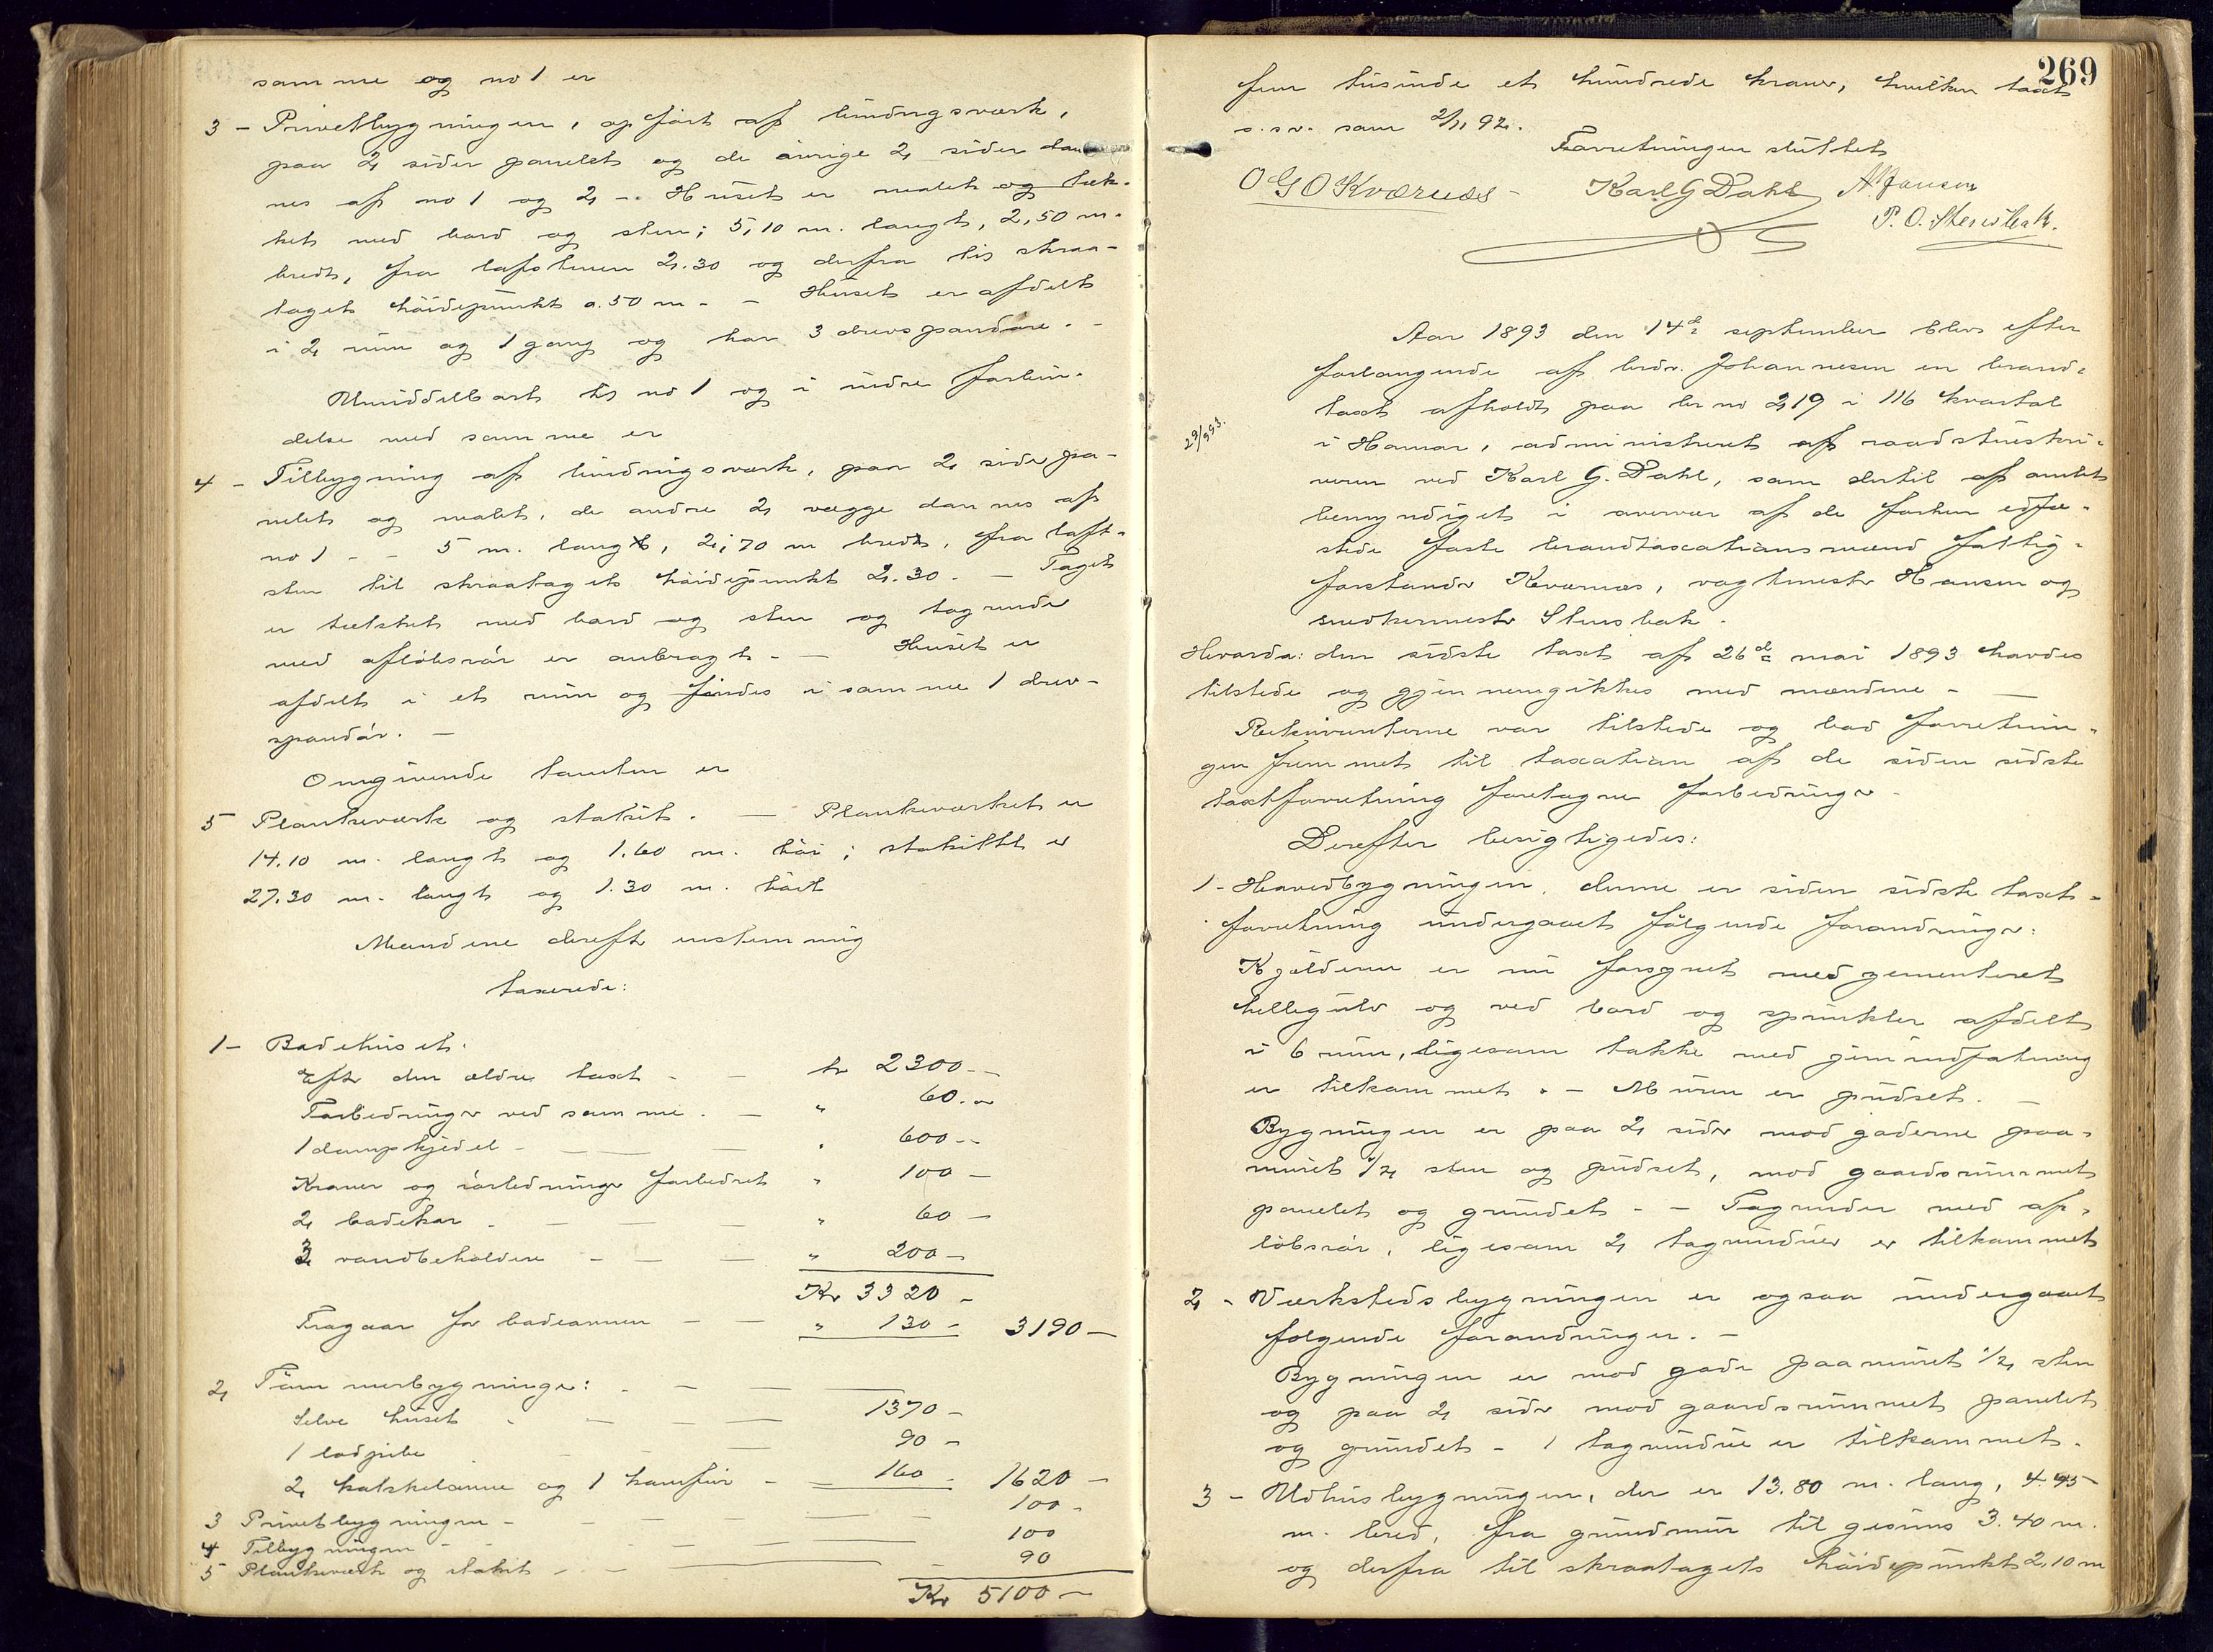 samme og no 1 er
3 - Privetbygningen, opført af bindingsværk,
paa 2 sider panelet og de øvrige 2 sider dan
nes af no 1 og 2 - Huset er malet og tæk-
ket med bord og sten; 5,10 m. langt, 2,50 m.
bredt, fra lafstenen 2.30 og derfra til skraa-
tagets høidepunkt 0.50 m - - Huset er afdelt
i 2 rum og 1 gang og har 3 drevspandøre. -
Umiddelbart til no 1 og i indre forbin-
delse med samme er
4 - Tilbygning af bindingsværk, paa 2 sider pa-
nelet og malet, de andre 2 vægge dannes af
no 1 - - 5 m. langt, 2,70 m bredt, fra laft-
sten til skraatagets høidepunkt 2.30. - Taget
er tækket med bord og sten og tagrende
med afløbsrør er anbragt - - Huset er
afdelt i et rum og findes i samme 1 drev-
spandør. -
Omgivende tomten er
5 Plankeværk og stakit. - Plankeværket er
14.10 m. langt og 1.60 m. høi; stakittet er
27.30 m. langt og 1.30 m. høit
Mændene derefter enstemmig
taxerede:
1 - Badehuset.
Efter den ældre taxt - - kr 2300 - -
Forbedringer ved samme. - " 60. "
1 dampkjedel - - - " 600 - -
Kraner og rørledninger forbedret " 100 -
2 badekar - - - - " 60 -
3 vandbeholdere - - - " 200 -
Kr 3320 -
Fragaar for badeovnen - - " 130 - 3190 -
2 Tømmerbygninger: - - -
Selve huset - - - - 1370 -
1 lodpibe - - - 90 -
2 kakkelovne og 1 komfur - - 160 - 1620 -
3 Privetbygningen - - - - 100 -
4 Tilbygningen - - - - 100
5 Plankeværk og stakit - - - 90
Kr 5100 -
269
fem tusinde et hundrede kroner, hvilken taxt
o.s.v. som 2/11 92.
Forretningen sluttet
O G O Kværnes - Karl G Dahl A Hansen
P. O. Stensbak.
Aar 1893 den 14de september blev efter
forlangende af brdr. Johannesen en brand-
taxt afholdt paa br no 219 i 116 kvartal
29/9 93.
i Hamar, administreret af raadstueskri-
veren ved Karl G. Dahl, som dertil af amtet
bemyndiget i overvær af de forhen edfæ-
stede faste brandtaxationsmænd fattig-
forstander Kværnæs, vagtmester Hansen og
snedkermester Stensbak.
Hvorda: den sidste taxt af 26de mai 1893 havdes
tilstede og gjennemgikkes med mændene - -
Rekvirenterne var tilstede og bad forretnin-
gen fremmet til taxation af de siden sidste
taxtforretning foretagne forbedringer -
Derefter besigtigedes:
1 - Hovedbygningen, denne er siden sidste taxt-
forretning undergaaet følgende forandringer:
Kjælderen er nu forsynet med zementeret
hellegulv og ved bord og sprinkler afdelt
i 6 rum, ligesom takke med jernindfatning
er tilkommet. - Muren er pudset. -
Bygningen er paa 2 sider mod gaderne paa-
muret 1/2 sten og pudset, mod gaardsrummet
panelet og grundet - - Tagrender med af-
løbsrør, ligesom 2 tagvinduer er tilkommet
2 - Værkstedsbygningen er ogsaa undergaaet
følgende forandringer. -
Bygningen er mod gade paamuret 1/2 sten
og paa 2 sider mod gaardsrummet panelet
og grundet - 1 tagvindue er tilkommet.
3 - Udhusbygningen, der er 13.80 m. lang, 4.45
m. bred, fra grundmur til gesims 3.40 m.
og derfra til skraatagets høidepunkt 2,10 m